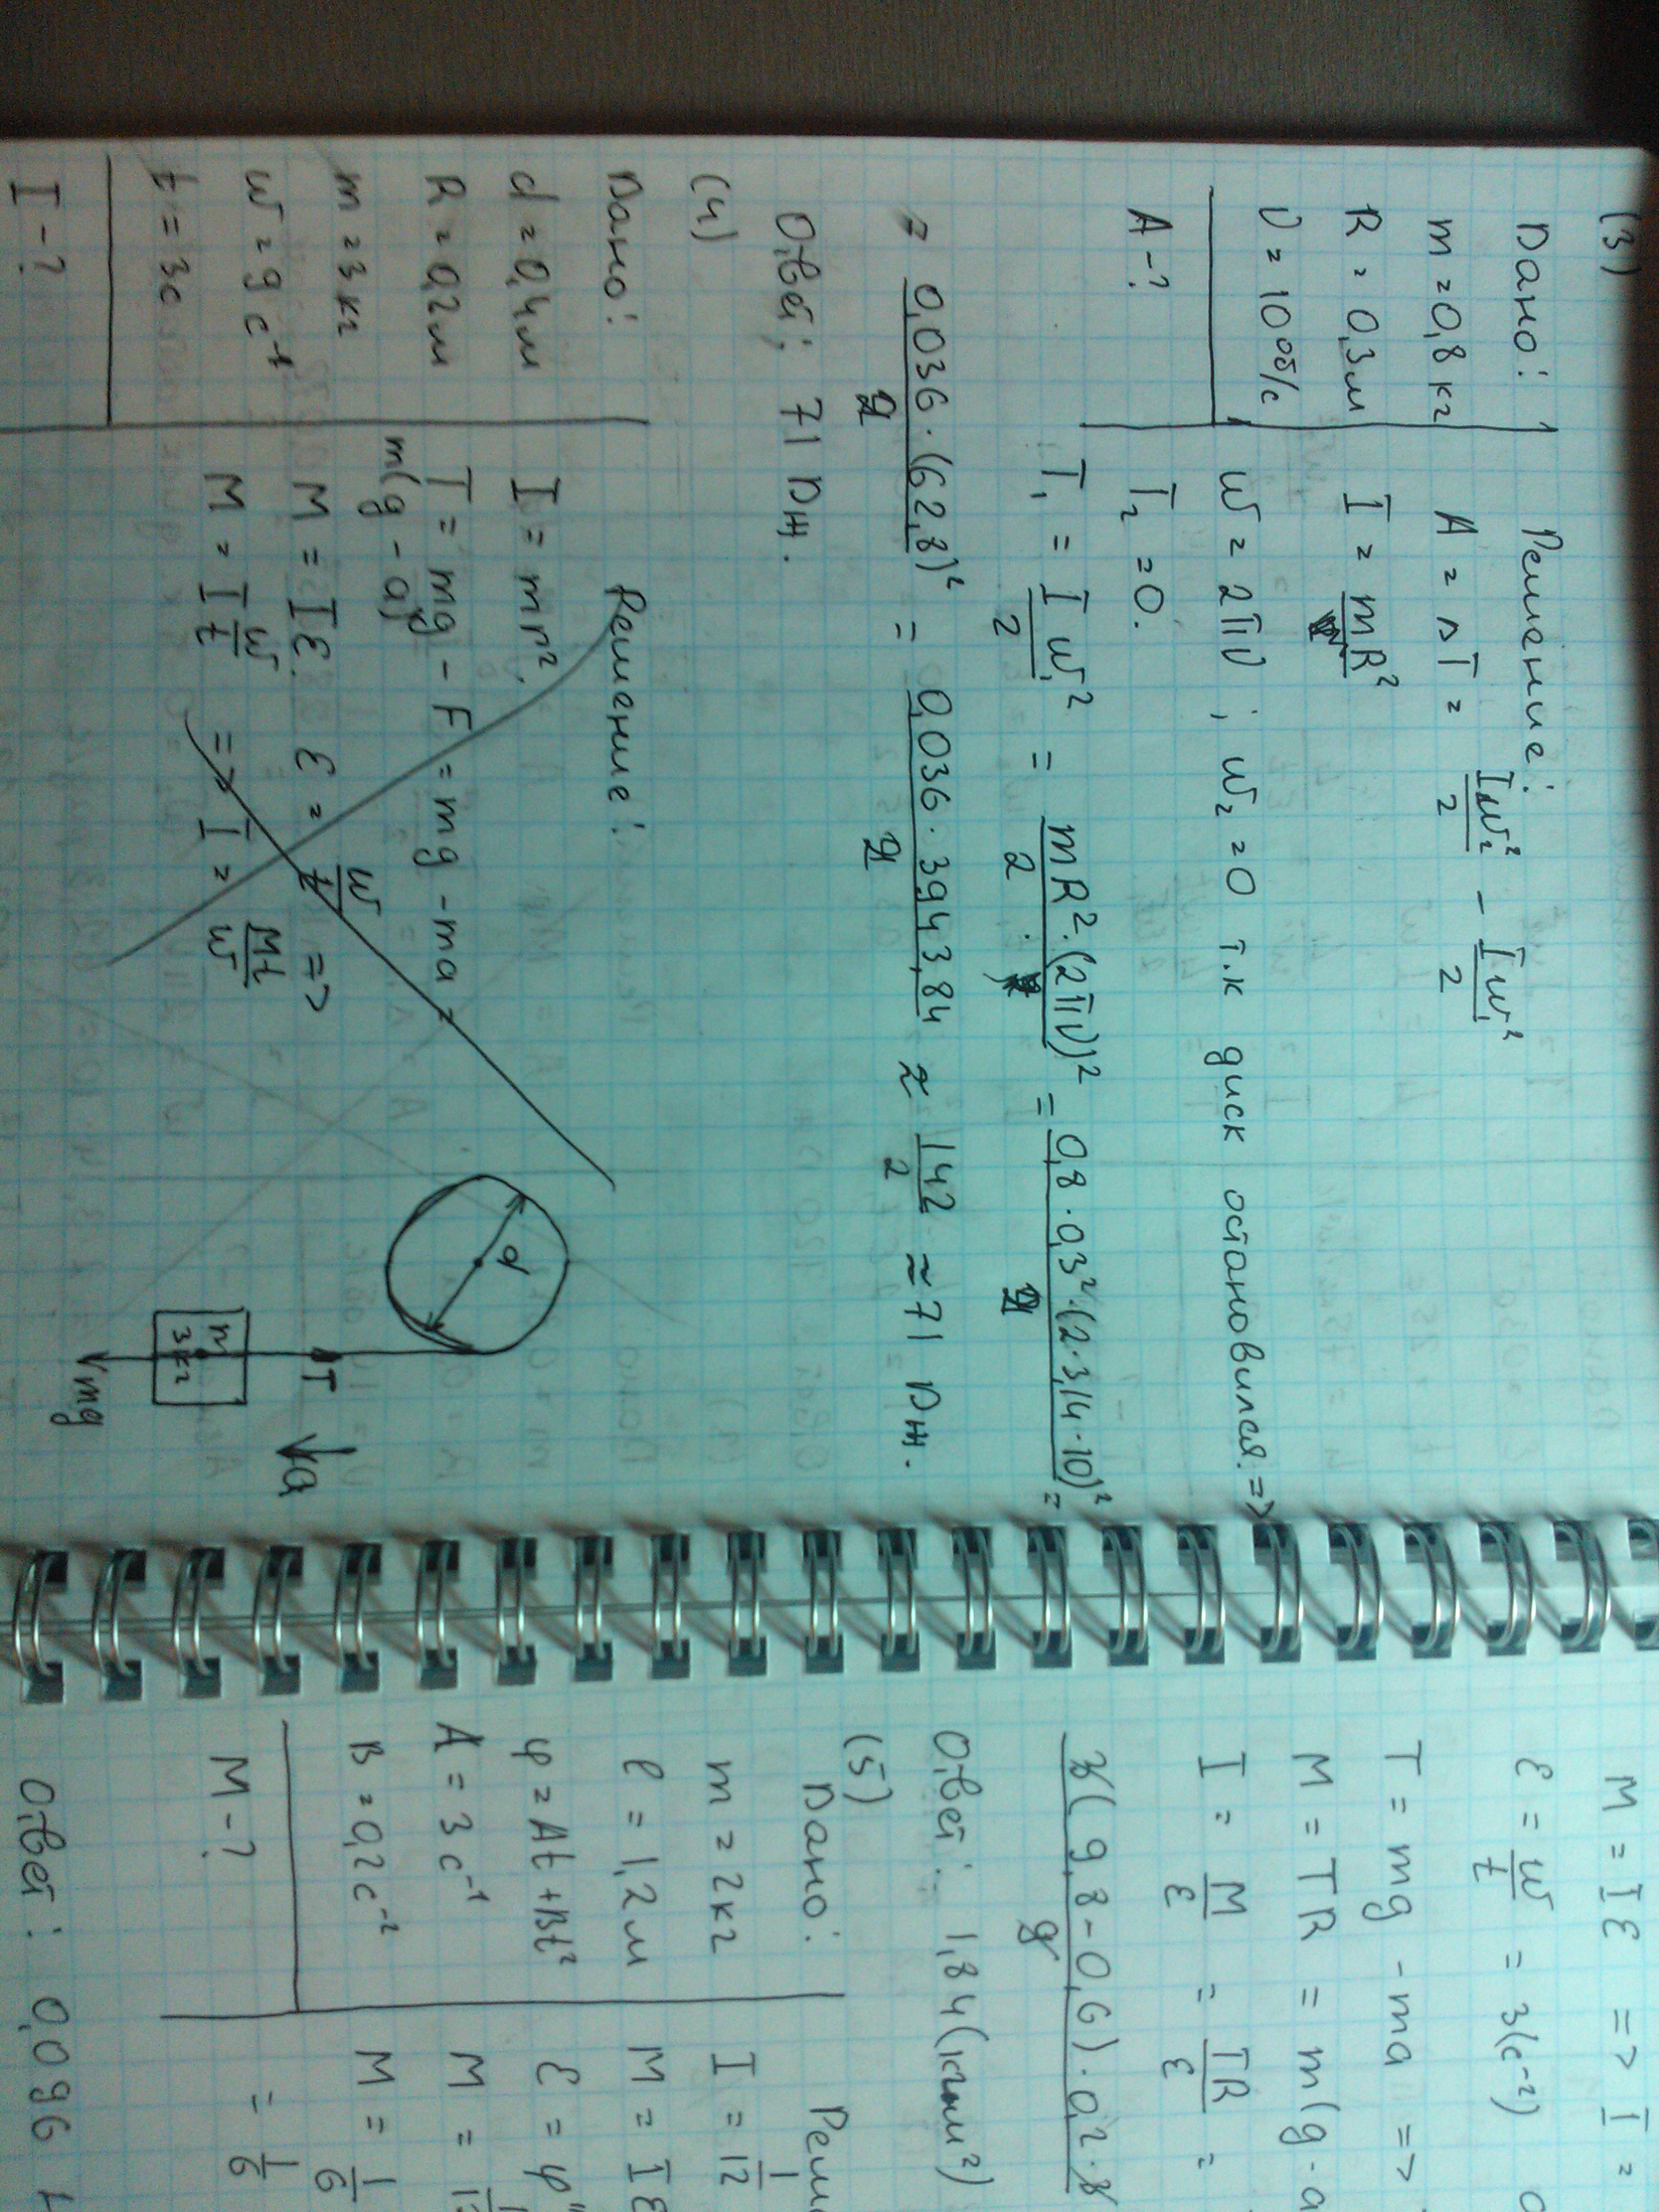 (3)
Дано:
m = 0,8 кг
R = 0,3 м
ν = 10 об/с
A - ?
Решение:
A = ΔT = Iω₂²/2 - Iω₁²/2
I = mR²
ω = 2πν ; ω₂ = 0 т.к диск остановился. =>
T₂ = 0.
T₁ = Iω₁²/2 = mR²·(2πν)²/2 = 0,8·0,3²·(2·3,14·10)²/2 =
= 0,036·(62,8)²/2 = 0,036·3943,84/2 ≈ 142/2 ≈ 71 Дж.
Ответ: 71 Дж.
(4)
Дано:
d = 0,4 м
R = 0,2 м
m = 3 кг
ω = 9 с⁻¹
t = 3с
I - ?
Решение:
I = mr².
T = mg - F = mg - ma =
m(g - a)
M = Iε. ε = ω/t =>
M = I ω/t => I = Mt/ω
d
T
a
m
3 кг
mg
M = Iε => I =
ε = ω/t = 3(с⁻²)
T = mg - ma =>
M = TR = m(g - a
I = M/ε = TR/ε =
3(9,8-0,6)·0,2·3
9
Ответ: 1,84 (кг·м²)
(5)
Дано:
m = 2 кг
l = 1,2 м
φ = At + Bt²
A = 3 с⁻¹
B = 0,2 с⁻²
M - ?
I = 1/12
M = Iε
ε = φ''
M =
M = 1/6
= 1/6
Ответ: 0,096